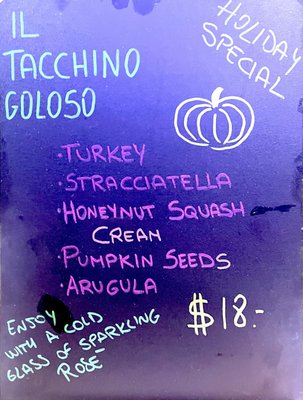 IL
TACCHINO
GOLOSO
HOLIDAY
SPECIAL
·TURKEY
·STRACCIATELLA
·HONEYNUT SQUASH
CREAM
·PUMPKIN SEEDS
·ARUGULA
$18.-
ENJOY
WITH A COLD
GLASS OF SPARKLING
ROSÉ